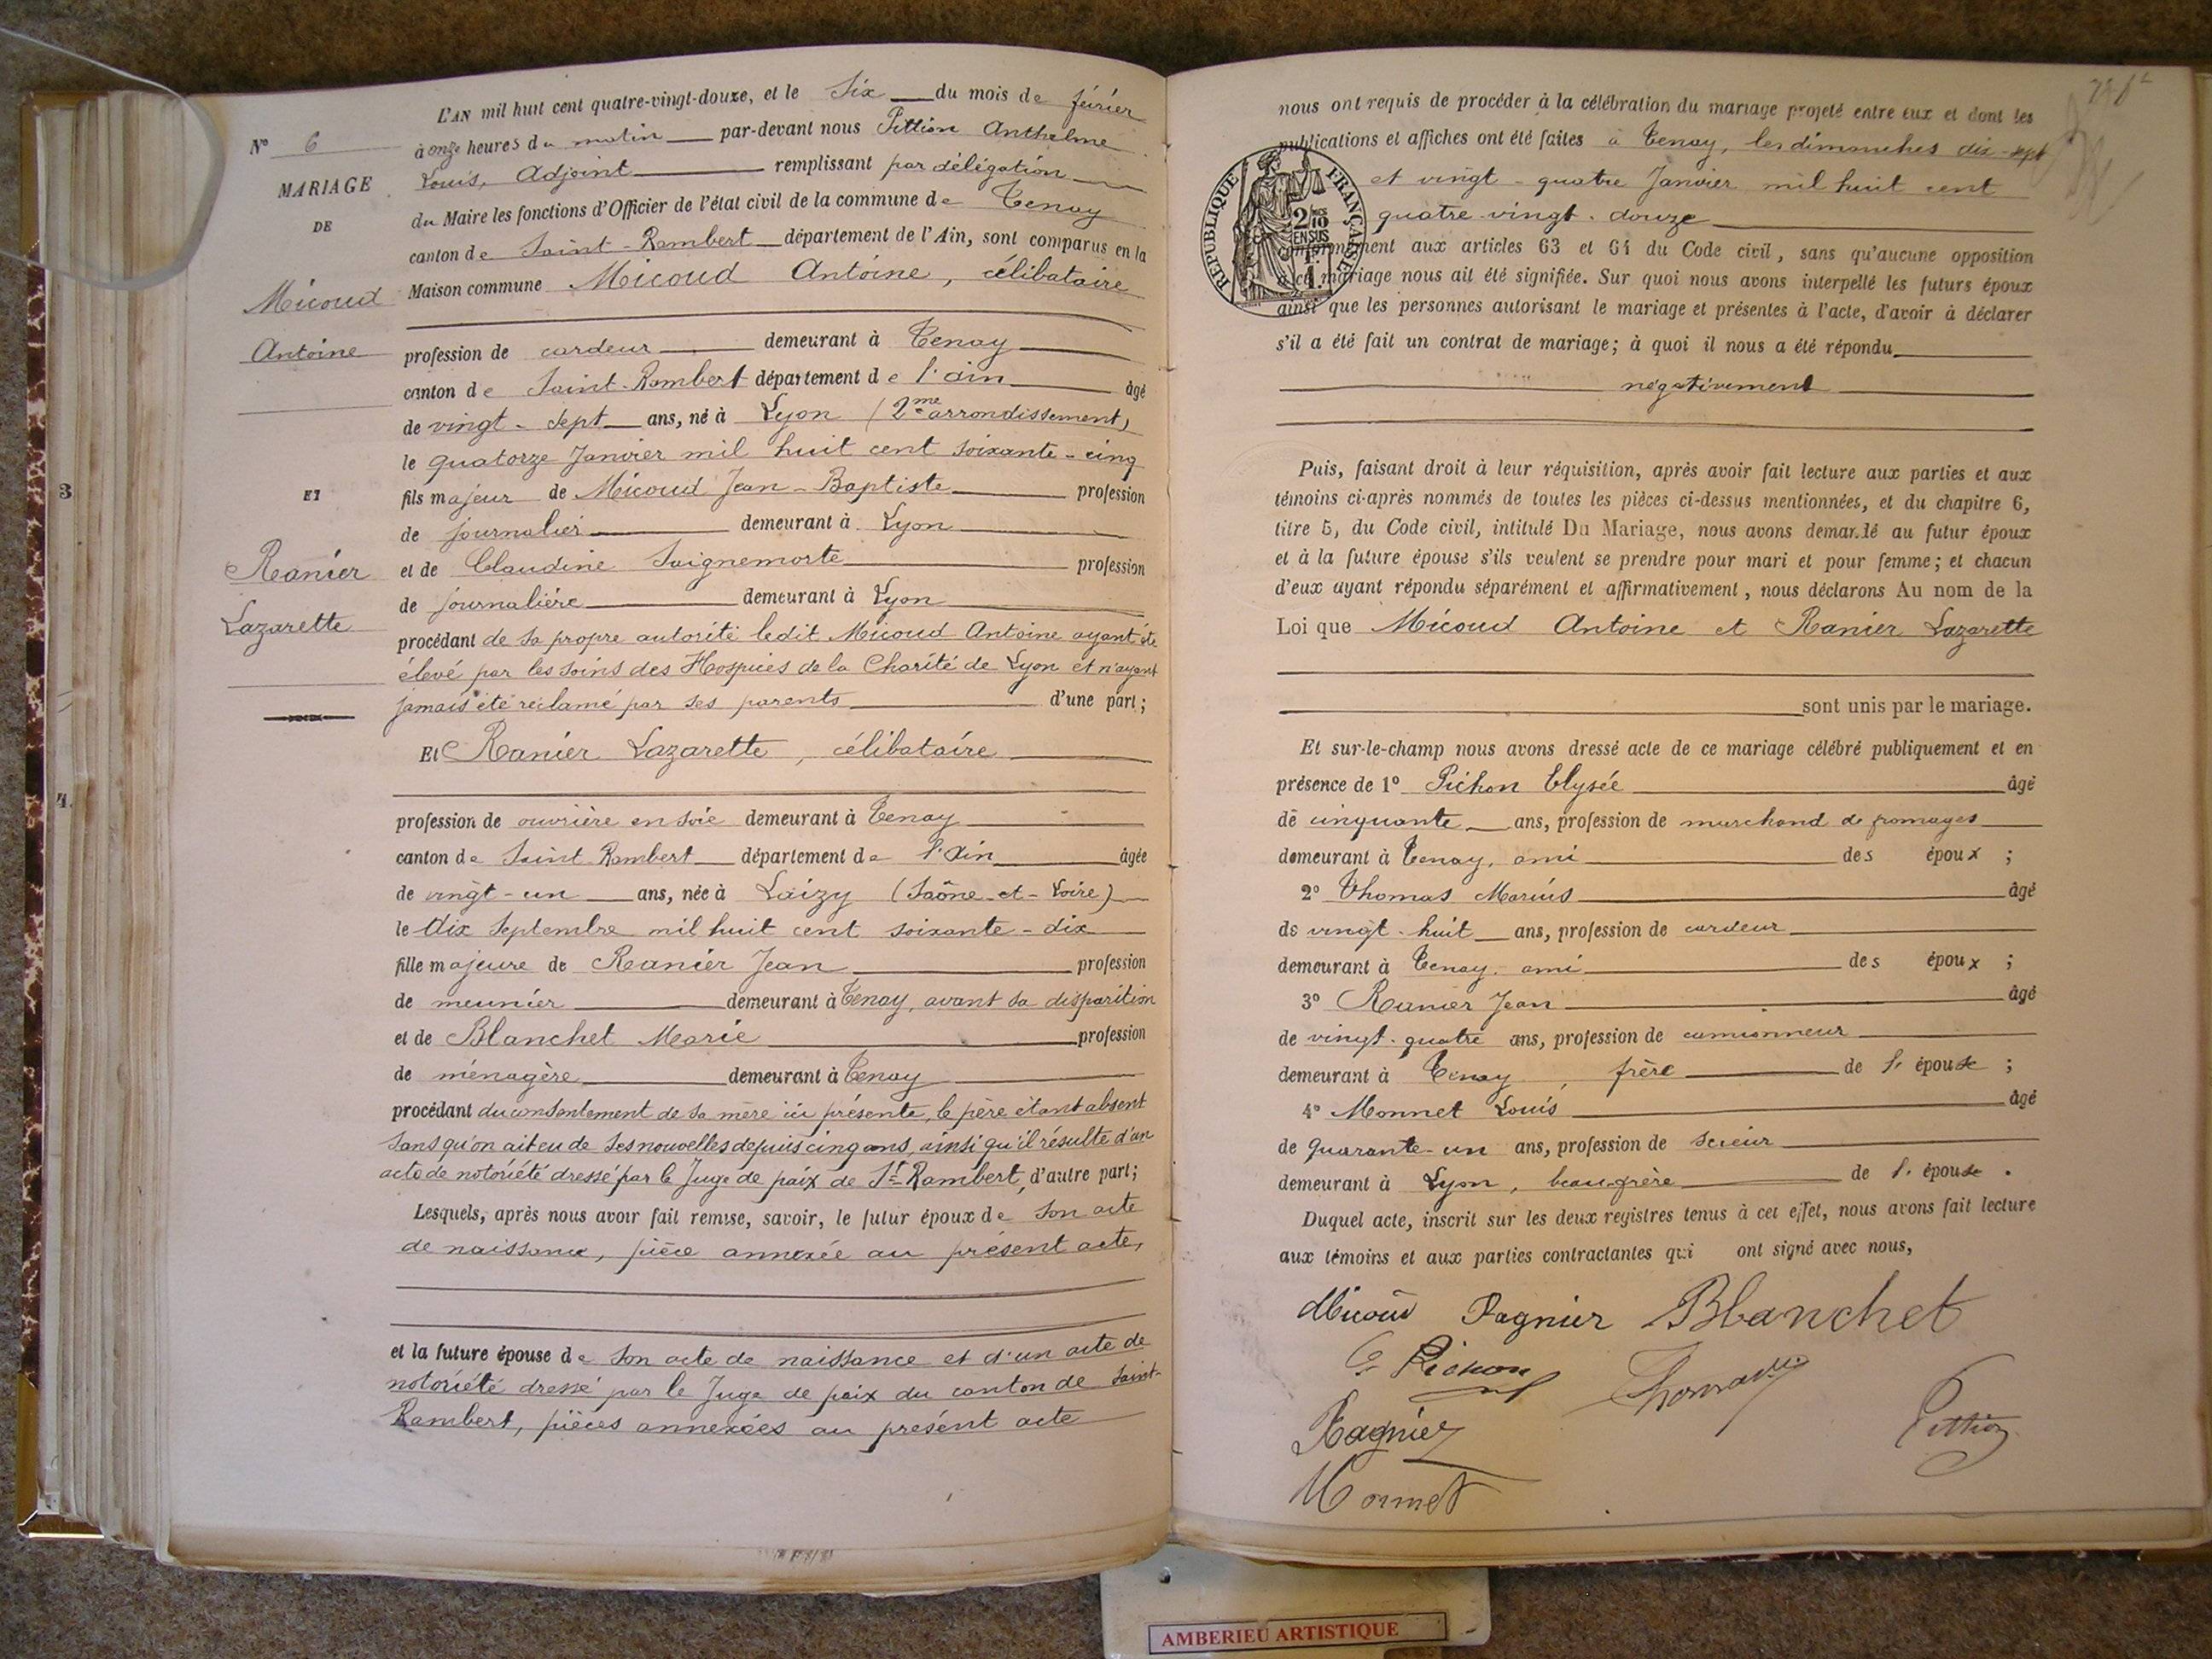 L'AN mil huit cent quatre-vingt-douze, et le Six du mois de février
N° 6
à onze heures du matin par-devant nous Pittion Anthelme
Louis, Adjoint remplissant par délégation
MARIAGE
du Maire les fonctions d'Officier de l'état civil de la commune de Tenay
DE
canton de Saint-Rambert département de l'Ain, sont comparus en la
Micoud
Maison commune Micoud Antoine, célibataire
Antoine
profession de cardeur demeurant à Tenay
canton de Saint-Rambert département de l'ain âgé
de vingt-sept ans, né à Lyon (2me arrondissement)
le quatorze Janvier mil huit cent soixante-cinq
ET
fils majeur de Micoud Jean-Baptiste profession
de journalier demeurant à Lyon
Ranier
et de Claudine Saignemorte profession
de journalière demeurant à Lyon
Lazarette
procédant de sa propre autorité ledit Micoud Antoine ayant été
élevé par les soins des Hospices de la Charité de Lyon et n'ayant
jamais été réclamé par ses parents d'une part;
Et Ranier Lazarette, célibataire
profession de ouvrière en soie demeurant à Tenay
canton de Saint Rambert département de l'Ain âgée
de vingt-un ans, née à Laizy (Saône-et-Loire)
le dix Septembre mil huit cent soixante-dix
fille majeure de Ranier Jean profession
de meunier demeurant à Tenay, avant sa disparition
et de Blanchet Marie profession
de ménagère demeurant à Tenay
procédant du consentement de sa mère ici présente, le père étant absent
sans qu'on ait eu de ses nouvelles depuis cinq ans, ainsi qu'il résulte d'un
acte de notoriété dressé par le Juge de paix de St-Rambert, d'autre part;
Lesquels, après nous avoir fait remise, savoir, le futur époux de son acte
de naissance, pièce annexée au présent acte,
et la future épouse de son acte de naissance et d'un acte de
notoriété dressé par le Juge de paix du canton de Saint-
Rambert, pièces annexées au présent acte
3
4
nous ont requis de procéder à la célébration du mariage projeté entre eux et dont les
publications et affiches ont été faites à Tenay, les dimanches dix-sept
et vingt-quatre Janvier mil huit cent
quatre-vingt-douze
RÉPUBLIQUE FRANÇAISE
2/10
EN SUS
conformément aux articles 63 et 64 du Code civil, sans qu'aucune opposition
à ce mariage nous ait été signifiée. Sur quoi nous avons interpellé les futurs époux
ainsi que les personnes autorisant le mariage et présentes à l'acte, d'avoir à déclarer
s'il a été fait un contrat de mariage; à quoi il nous a été répondu
négativement
Puis, faisant droit à leur réquisition, après avoir fait lecture aux parties et aux
témoins ci-après nommés de toutes les pièces ci-dessus mentionnées, et du chapitre 6,
titre 5, du Code civil, intitulé Du Mariage, nous avons demandé au futur époux
et à la future épouse s'ils veulent se prendre pour mari et pour femme; et chacun
d'eux ayant répondu séparément et affirmativement, nous déclarons Au nom de la
Loi que Micoud Antoine et Ranier Lazarette
sont unis par le mariage.
Et sur-le-champ nous avons dressé acte de ce mariage célébré publiquement et en
présence de 1° Pichon Elysée âgé
de cinquante ans, profession de marchand de fromages
demeurant à Tenay, ami des époux ;
2° Thomas Marius âgé
de vingt-huit ans, profession de cardeur
demeurant à Tenay, ami des époux ;
3° Ranier Jean âgé
de vingt-quatre ans, profession de camionneur
demeurant à Tenay, frère de l'épouse ;
4° Monnet Louis âgé
de quarante-un ans, profession de scieur
demeurant à Lyon, beau-frère de l'épouse .
Duquel acte, inscrit sur les deux registres tenus à cet effet, nous avons fait lecture
aux témoins et aux parties contractantes qui ont signé avec nous,
Micoud Ragnier Blanchet
E. Pichon Thomas
Pittion
Ragnier
Monnet
AMBERIEU ARTISTIQUE